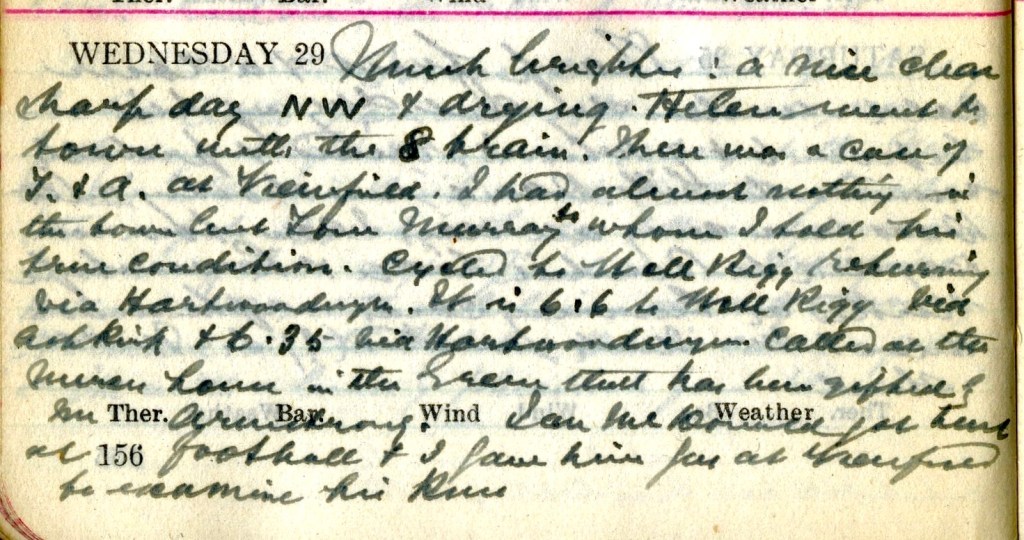 Ther. Bar. Wind Weather
WEDNESDAY 29 Much brighter: a nice clear
sharp day NW & drying. Helen went to
town with the 8 train. There was a case of
T. & A. at Viewfield. I had almost nothing in
the town but Tom Murray to whom I told his
true condition. Cycled to Woll Rigg returning
via Hartwoodmyres. It is 6.6 to Woll Rigg via
Ashkirk & 6.35 via Hartwoodmyres. Called at the
house in the Green that has been gifted by
Mr Armstrong. Ian got hurt
Ther. Bar. Wind Weather
at football & I gave him gas at Viewfield
156
to examine his knee